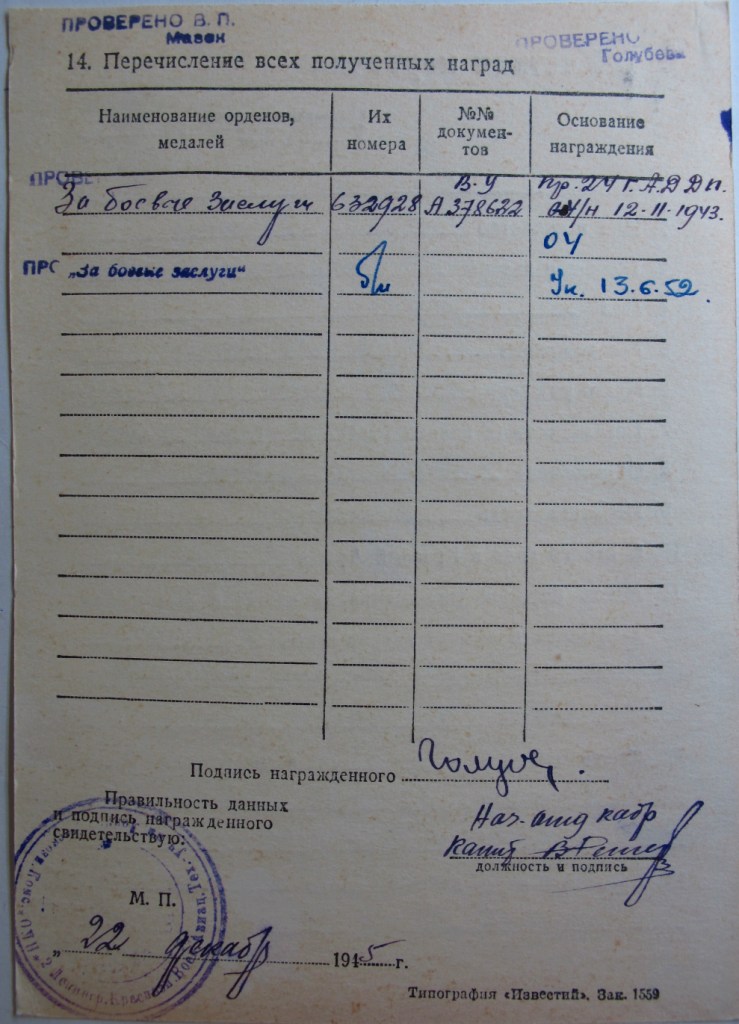 ПРОВЕРЕНО В. П.
Мазек
ПРОВЕРЕНО
Голубева
14. Перечисление всех полученных наград
Наименование орденов, медалей
Их номера
№№ докумен-тов
Основание награждения
ПРОВЕ
За боевые заслуги 632928 В-У А 378622 Пр. 24 Г.А.Д.Д.П.
04/н 12-11-1943.
04
ПРО „За боевые заслуги“ б/н Ук. 13.6.52.
Подпись награжденного
Правильность данных
и подпись награжденного
свидетельствую:
Нач. отд кадр
Капит
должность и подпись
М. П.
„22 декабр 1945 г.
Типография «Известий». Зак. 1559